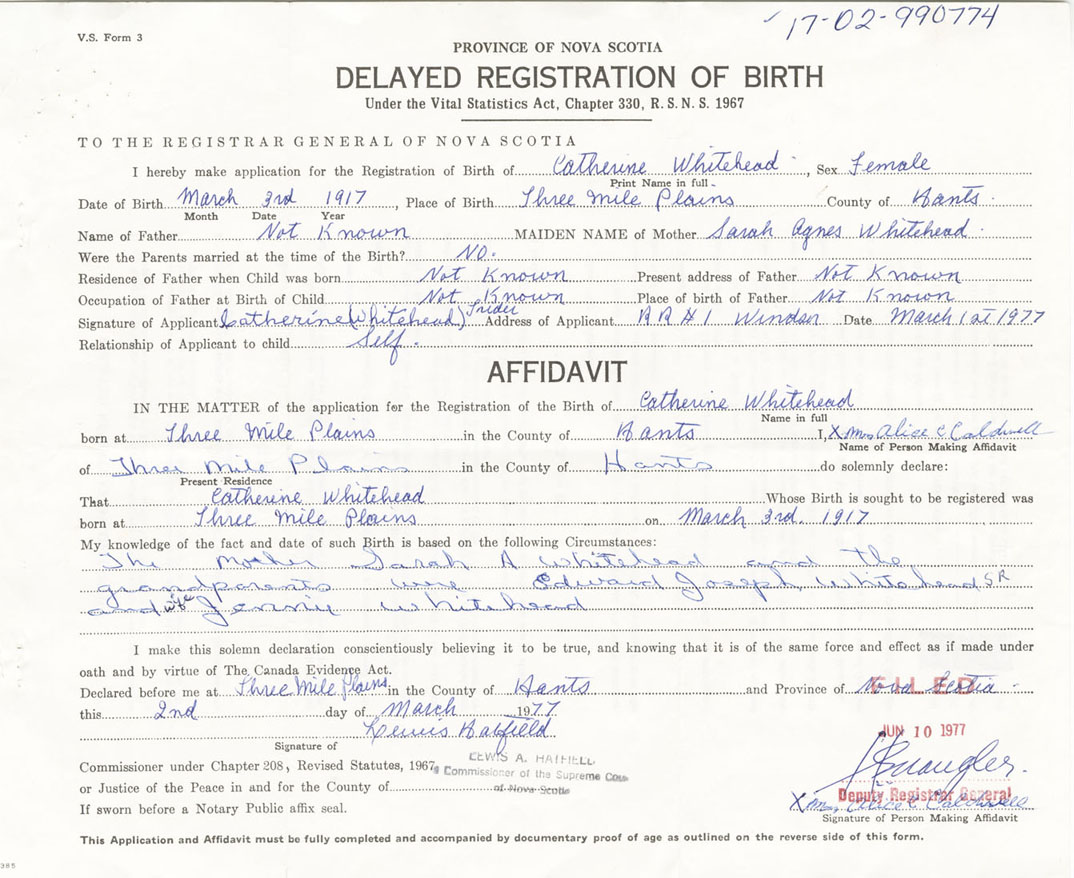 17-02-990774
V.S. Form 3
PROVINCE OF NOVA SCOTIA
DELAYED REGISTRATION OF BIRTH
Under the Vital Statistics Act, Chapter 330, R.S.N.S. 1967
TO THE REGISTRAR GENERAL OF NOVA SCOTIA
I hereby make application for the Registration of Birth of Catherine Whitehead, Sex Female
Print Name in full
Date of Birth March 3rd 1917, Place of Birth Three Mile Plains County of Hants
Month Date Year
Name of Father Not Known MAIDEN NAME of Mother Sarah Agnes Whitehead
Were the Parents married at the time of the Birth? NO.
Residence of Father when Child was born Not Known Present address of Father Not Known
Occupation of Father at Birth of Child Not Known Place of birth of Father Not Known
Signature of Applicant Catherine (Whitehead) Address of Applicant R R # 1 Windsor Date March 1st 1977
Relationship of Applicant to child Self.
AFFIDAVIT
IN THE MATTER of the application for the Registration of the Birth of Catherine Whitehead
Name in full
born at Three Mile Plains in the County of Hants I, X Mrs Alice C Caldwell
Name of Person Making Affidavit
of Three Mile Plains in the County of Hants do solemnly declare:
Present Residence
That Catherine Whitehead Whose Birth is sought to be registered was
born at Three Mile Plains on March 3rd. 1917
My knowledge of the fact and date of such Birth is based on the following Circumstances:
The Mother Sarah A Whitehead and the
grandparents were Edward Joseph Whitehead SR
and wife Jenny Whitehead
I make this solemn declaration conscientiously believing it to be true, and knowing that it is of the same force and effect as if made under
oath and by virtue of The Canada Evidence Act.
Declared before me at Three Mile Plains in the County of Hants and Province of Nova Scotia
FILED
this 2nd day of March 1977
JUN 10 1977
Lewis Hatfield
Signature of
LEWIS A. HATFIELD
Commissioner under Chapter 208, Revised Statutes, 1967,
Commissioner of the Supreme Court
or Justice of the Peace in and for the County of
of Nova Scotia
Deputy Registrar General
X Mrs Alice C Caldwell
If sworn before a Notary Public affix seal.
Signature of Person Making Affidavit
This Application and Affidavit must be fully completed and accompanied by documentary proof of age as outlined on the reverse side of this form.
385